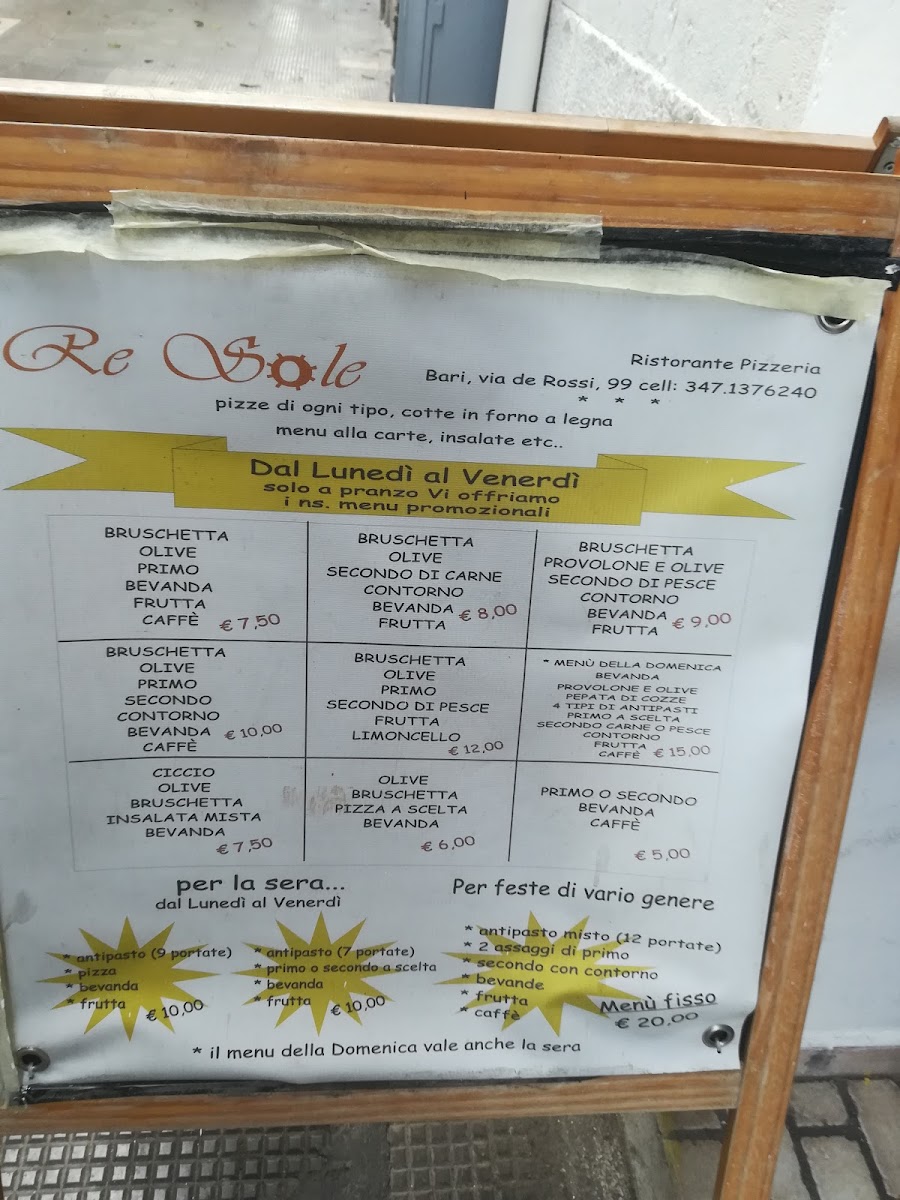 Re Sole
Ristorante Pizzeria
Bari, via de Rossi, 99 cell: 347.1376240
* * *
pizze di ogni tipo, cotte in forno a legna
menu alla carte, insalate etc..
Dal Lunedì al Venerdì
solo a pranzo Vi offriamo
i ns. menu promozionali
BRUSCHETTA
OLIVE
PRIMO
BEVANDA
FRUTTA
CAFFÈ € 7,50
BRUSCHETTA
OLIVE
SECONDO DI CARNE
CONTORNO
BEVANDA € 8,00
FRUTTA
BRUSCHETTA
PROVOLONE E OLIVE
SECONDO DI PESCE
CONTORNO
BEVANDA € 9,00
FRUTTA
BRUSCHETTA
OLIVE
PRIMO
SECONDO
CONTORNO
BEVANDA € 10,00
CAFFÈ
BRUSCHETTA
OLIVE
PRIMO
SECONDO DI PESCE
FRUTTA
LIMONCELLO
€ 12,00
* MENÙ DELLA DOMENICA
BEVANDA
PROVOLONE E OLIVE
PEPATA DI COZZE
4 TIPI DI ANTIPASTI
PRIMO A SCELTA
SECONDO CARNE O PESCE
CONTORNO
FRUTTA
CAFFÈ € 15,00
CICCIO
OLIVE
BRUSCHETTA
INSALATA MISTA
BEVANDA
€ 7,50
OLIVE
BRUSCHETTA
PIZZA A SCELTA
BEVANDA
€ 6,00
PRIMO O SECONDO
BEVANDA
CAFFÈ
€ 5,00
per la sera...
dal Lunedì al Venerdì
* antipasto (9 portate)
* pizza
* bevanda
* frutta € 10,00
* antipasto (7 portate)
* primo o secondo a scelta
* bevanda
* frutta € 10,00
Per feste di vario genere
* antipasto misto (12 portate)
* 2 assaggi di primo
* secondo con contorno
* bevande
* frutta
* caffè
Menù fisso
€ 20,00
* il menu della Domenica vale anche la sera